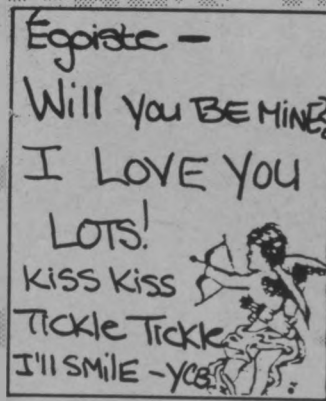 Égoiste –
Will You BE MINE?
I LOVE YOU
LOTS!
KISS KISS
TICKLE TICKLE
I'll SMILE – YCB